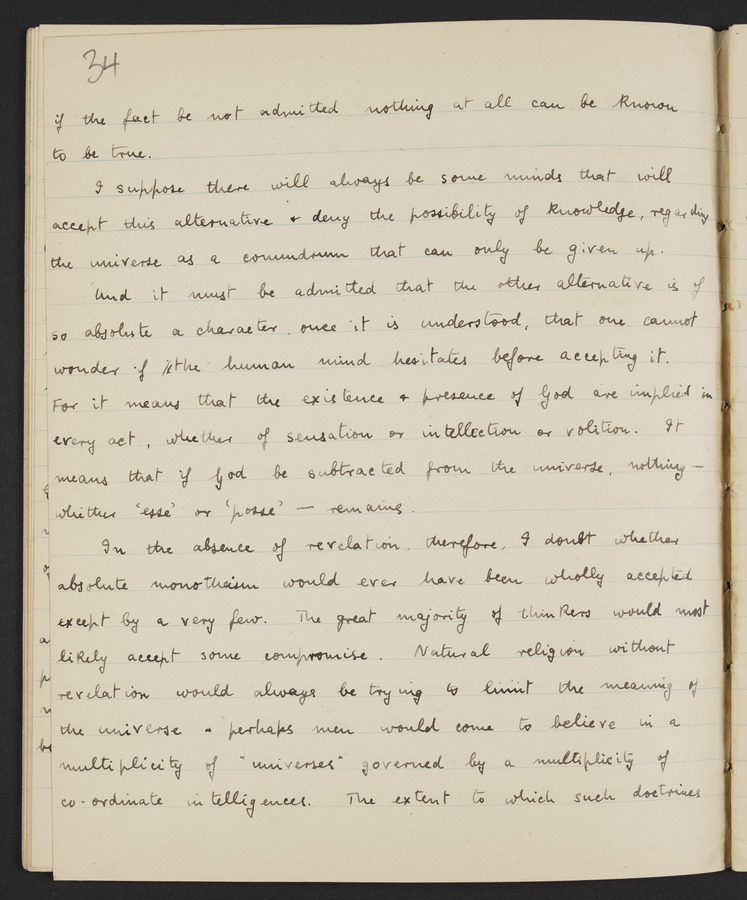 34
if the fact be not admitted nothing at all can be known
to be true.
I suppose there will always be some minds that will
accept this alternative & deny the possibility of knowledge, regarding
the universe as a conundrum that can only be given up.
And it must be admitted that the other alternative is of
so absolute a character, once it is understood, that one cannot
wonder if the human mind hesitates before accepting it.
For it means that the existence & presence of God are implied in
every act, whether of sensation or intellection or volition. It
means that if God be subtracted from the universe, nothing —
whether 'esse' or 'posse' — remains.
In the absence of revelation, therefore, I doubt whether
absolute monotheism would ever have been wholly accepted
except by a very few. The great majority of thinkers would most
likely accept some compromise. Natural religion without
revelation would always be trying to limit the meaning of
the universe & perhaps men would come to believe in a
multiplicity of "universes" governed by a multiplicity of
co-ordinate intelligences. The extent to which such doctrines